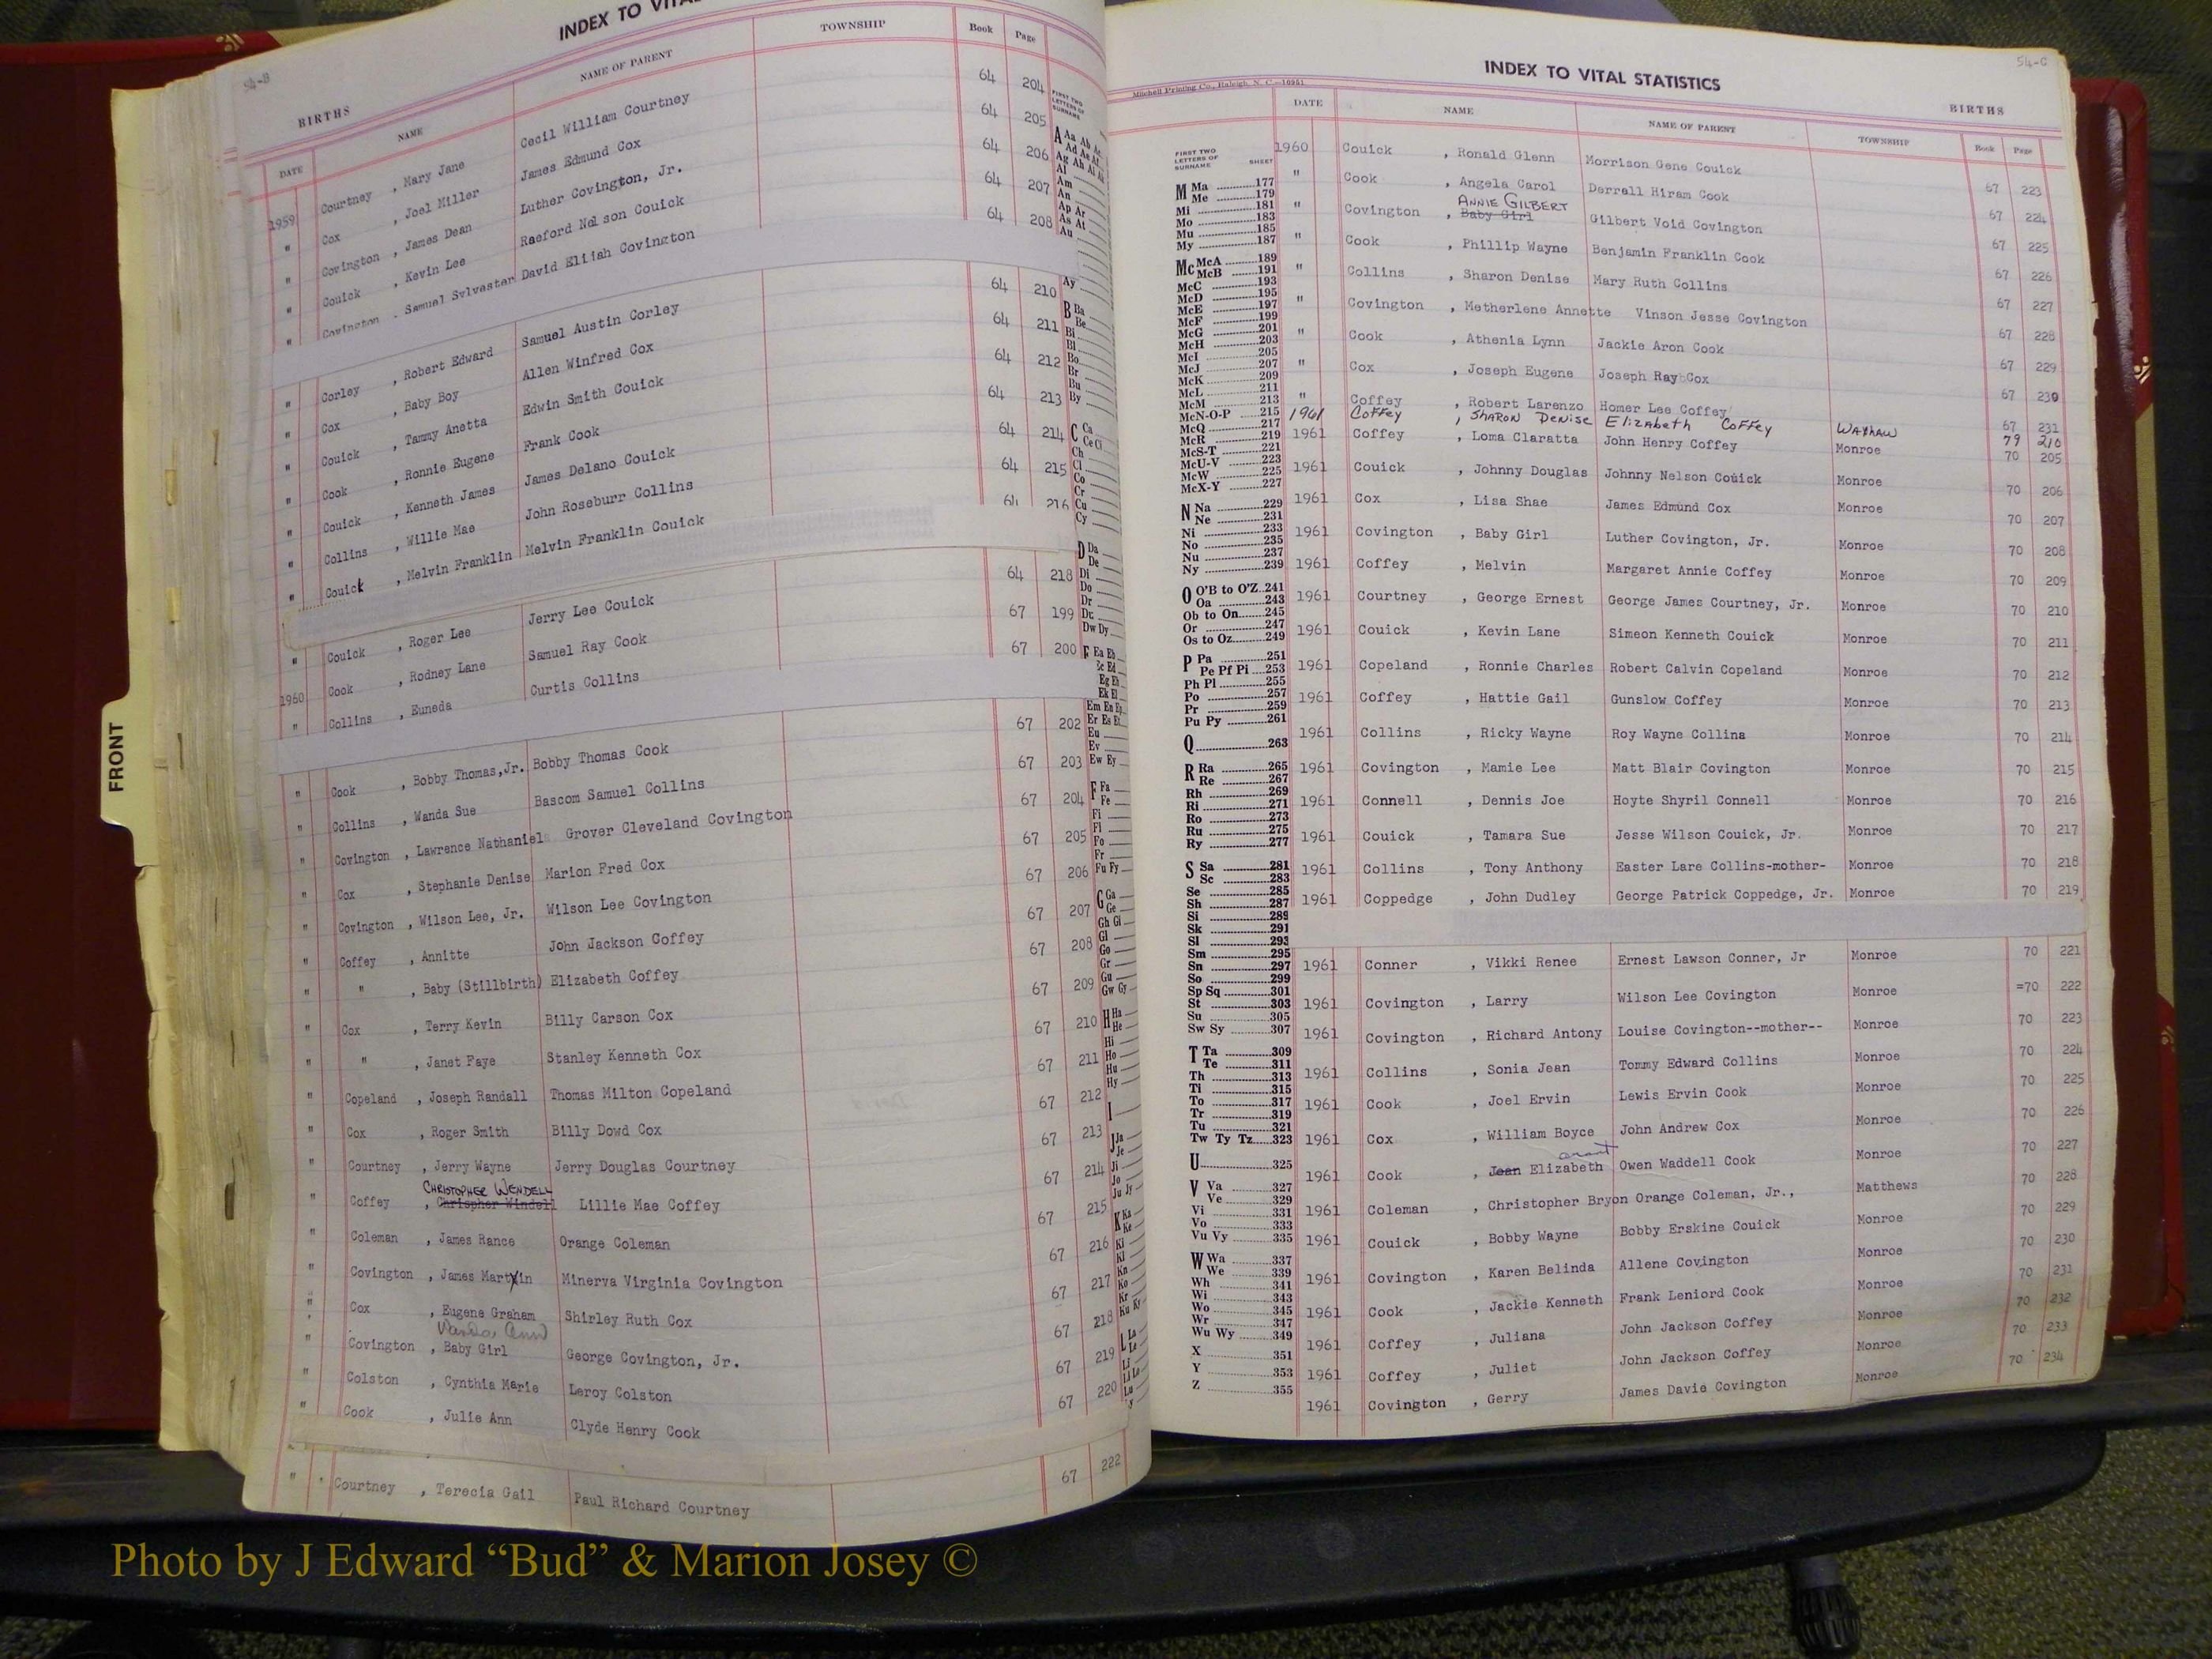 54-B
INDEX TO
BIRTHS
DATE NAME NAME OF PARENT TOWNSHIP Book Page
1959 Courtney , Mary Jane Cecil William Courtney 64 204
" Cox , Joel Miller James Edmund Cox 64 205
" Covington , James Dean Luther Covington, Jr. 64 206
" Couick , Kevin Lee Raeford Nelson Couick 64 207
" Covington , Samuel Sylvester David Elijah Covington 64 208
" Corley , Robert Edward Samuel Austin Corley 64 210
" Cox , Baby Boy Allen Winfred Cox 64 211
" Couick , Tammy Anetta Edwin Smith Couick 64 212
" Cook , Ronnie Eugene Frank Cook 64 213
" Couick , Kenneth James James Delano Couick 64 214
" Collins , Willie Mae John Roseburr Collins 64 215
" Couick , Melvin Franklin Melvin Franklin Couick 64 216
" Couick , Roger Lee Jerry Lee Couick 64 218
1960 Cook , Rodney Lane Samuel Ray Cook 67 199
" Collins , Euneda Curtis Collins 67 200
" Cook , Bobby Thomas,Jr. Bobby Thomas Cook 67 202
" Collins , Wanda Sue Bascom Samuel Collins 67 203
" Covington , Lawrence Nathaniel Grover Cleveland Covington 67 204
" Cox , Stephanie Denise Marion Fred Cox 67 205
" Covington , Wilson Lee, Jr. Wilson Lee Covington 67 206
" Coffey , Annitte John Jackson Coffey 67 207
" " , Baby (Stillbirth) Elizabeth Coffey 67 208
" Cox , Terry Kevin Billy Carson Cox 67 209
" " , Janet Faye Stanley Kenneth Cox 67 210
" Copeland , Joseph Randall Thomas Milton Copeland 67 211
" Cox , Roger Smith Billy Dowd Cox 67 212
" Courtney , Jerry Wayne Jerry Douglas Courtney 67 213
CHRISTOPHER WENDELL
" Coffey , Chrispher Windell Lillie Mae Coffey 67 214
" Coleman , James Rance Orange Coleman 67 215
" Covington , James Martin Minerva Virginia Covington 67 216
" Cox , Eugene Graham Shirley Ruth Cox 67 217
Wanda Ann
" Covington , Baby Girl George Covington, Jr. 67 218
" Colston , Cynthia Marie Leroy Colston 67 219
" Cook , Julie Ann Clyde Henry Cook 67 220
" Courtney , Terecia Gail Paul Richard Courtney 67 222
FRONT
54-C
INDEX TO VITAL STATISTICS
Mitchell Printing Co., Raleigh, N. C.—10951
BIRTHS
DATE NAME NAME OF PARENT TOWNSHIP Book Page
1960 Couick , Ronald Glenn Morrison Gene Couick 67 223
" Cook , Angela Carol Darrell Hiram Cook 67 224
ANNIE GILBERT
" Covington , Baby Girl Gilbert Void Covington 67 225
" Cook , Phillip Wayne Benjamin Franklin Cook 67 226
" Collins , Sharon Denise Mary Ruth Collins 67 227
" Covington , Metherlene Annette Vinson Jesse Covington 67 228
" Cook , Athenia Lynn Jackie Aron Cook 67 229
" Cox , Joseph Eugene Joseph Ray Cox 67 230
" Coffey , Robert Larenzo Homer Lee Coffey 67 231
1961 Coffey , SHARON DENISE Elizabeth Coffey WAXHAW 79 210
1961 Coffey , Loma Claratta John Henry Coffey Monroe 70 205
1961 Couick , Johnny Douglas Johnny Nelson Couick Monroe 70 206
1961 Cox , Lisa Shae James Edmund Cox Monroe 70 207
1961 Covington , Baby Girl Luther Covington, Jr. Monroe 70 208
1961 Coffey , Melvin Margaret Annie Coffey Monroe 70 209
1961 Courtney , George Ernest George James Courtney, Jr. Monroe 70 210
1961 Couick , Kevin Lane Simeon Kenneth Couick Monroe 70 211
1961 Copeland , Ronnie Charles Robert Calvin Copeland Monroe 70 212
1961 Coffey , Hattie Gail Gunslow Coffey Monroe 70 213
1961 Collins , Ricky Wayne Roy Wayne Collina Monroe 70 214
1961 Covington , Mamie Lee Matt Blair Covington Monroe 70 215
1961 Connell , Dennis Joe Hoyte Shyril Connell Monroe 70 216
1961 Couick , Tamara Sue Jesse Wilson Couick, Jr. Monroe 70 217
1961 Collins , Tony Anthony Easter Lare Collins-mother- Monroe 70 218
1961 Coppedge , John Dudley George Patrick Coppedge, Jr. Monroe 70 219
1961 Conner , Vikki Renee Ernest Lawson Conner, Jr Monroe 70 221
1961 Covington , Larry Wilson Lee Covington Monroe =70 222
1961 Covington , Richard Antony Louise Covington--mother-- Monroe 70 223
1961 Collins , Sonia Jean Tommy Edward Collins Monroe 70 224
1961 Cook , Joel Ervin Lewis Ervin Cook Monroe 70 225
1961 Cox , William Boyce John Andrew Cox Monroe 70 226
1961 Cook , Jean Elizabeth Owen Waddell Cook Monroe 70 227
1961 Coleman , Christopher Bryon Orange Coleman, Jr., Matthews 70 228
1961 Couick , Bobby Wayne Bobby Erskine Couick Monroe 70 229
1961 Covington , Karen Belinda Allene Covington Monroe 70 230
1961 Cook , Jackie Kenneth Frank Leniord Cook Monroe 70 231
1961 Coffey , Juliana John Jackson Coffey Monroe 70 232
1961 Coffey , Juliet John Jackson Coffey Monroe 70 233
1961 Covington , Gerry James Davie Covington Monroe 70 234
FIRST TWO LETTERS OF SURNAME SHEET
M Ma 177
Me 179
Mi 181
Mo 183
Mu 185
My 187
Mc McA 189
McB 191
McC 193
McD 195
McE 197
McF 199
McG 201
McH 203
McI 205
McJ 207
McK 209
McL 211
McM 213
McN-O-P 215
McQ 217
McR 219
McS-T 221
McU-V 223
McW 225
McX-Y 227
N Na 229
Ne 231
Ni 233
No 235
Nu 237
Ny 239
O O'B to O'Z 241
Oa 243
Ob to On 245
Or 247
Os to Oz 249
P Pa 251
Pe Pf Pi 253
Ph Pl 255
Po 257
Pr 259
Pu Py 261
Q 263
R Ra 265
Re 267
Rh 269
Ri 271
Ro 273
Ru 275
Ry 277
S Sa 281
Sc 283
Se 285
Sh 287
Si 289
Sk 291
Sl 293
Sm 295
Sn 297
So 299
Sp Sq 301
St 303
Su 305
Sw Sy 307
T Ta 309
Te 311
Th 313
Ti 315
To 317
Tr 319
Tu 321
Tw Ty Tz 323
U 325
V Va 327
Ve 329
Vi 331
Vo 333
Vu Vy 335
W Wa 337
We 339
Wh 341
Wi 343
Wo 345
Wr 347
Wu Wy 349
X 351
Y 353
Z 355
Photo by J Edward “Bud” & Marion Josey ©